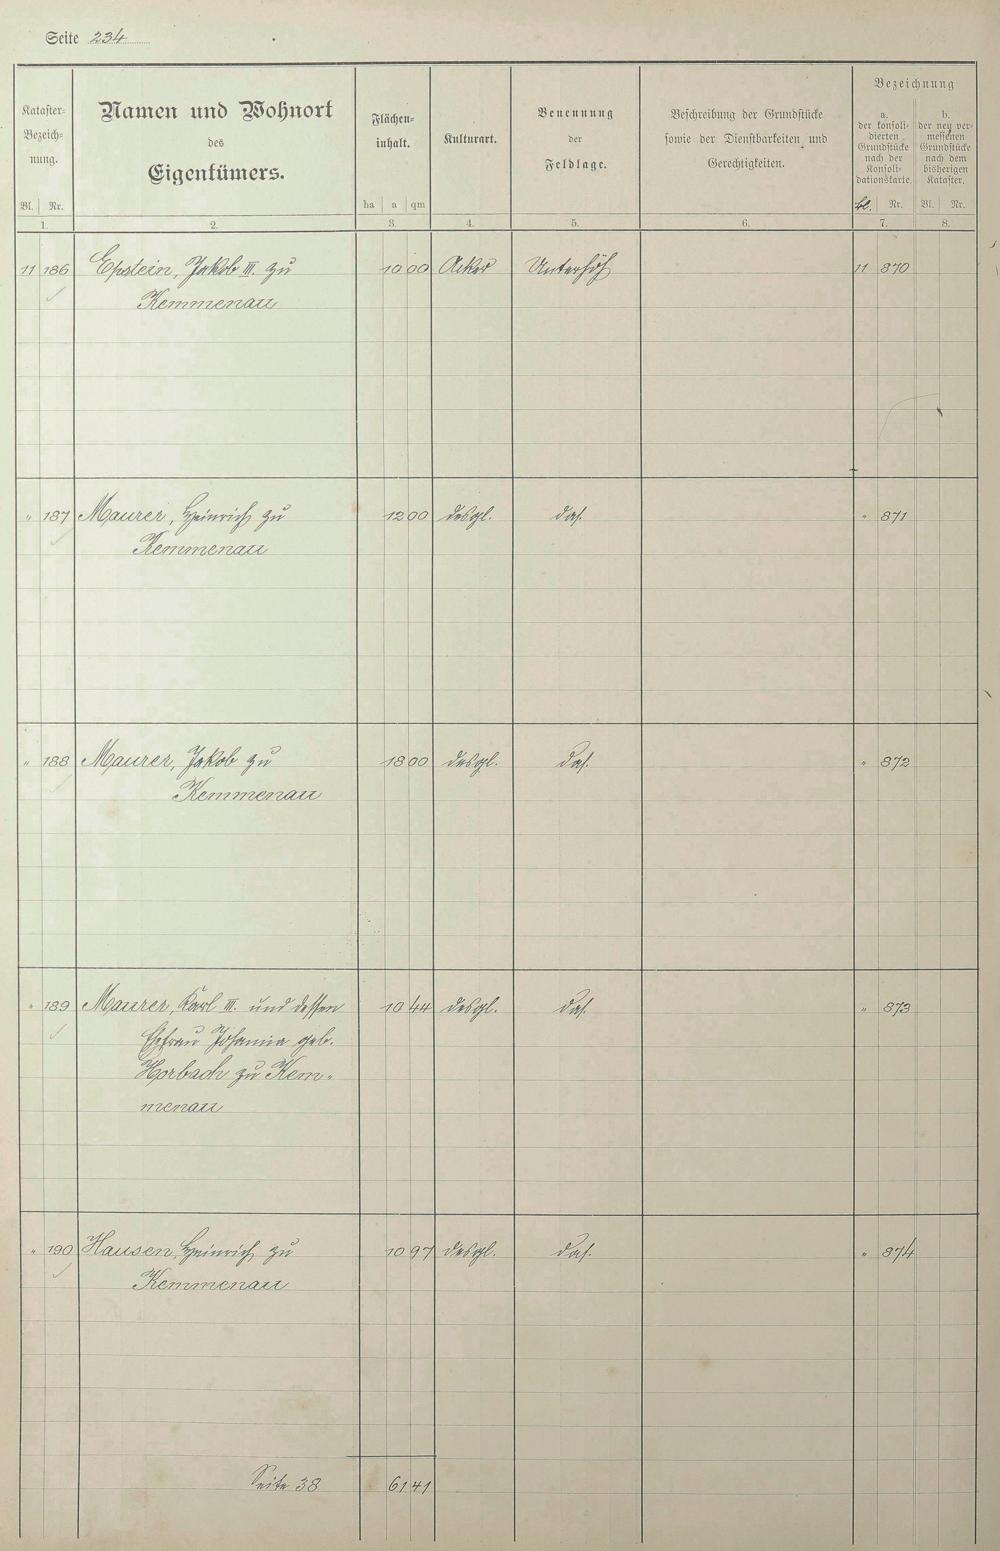 Seite 234
Kataster-
Bezeich-
nung.
Namen und Wohnort
des
Eigentümers.
Flächen-
inhalt.
Kulturart.
Benennung
der
Feldlage.
Beschreibung der Grundstücke
sowie der Dienstbarkeiten und
Gerechtigkeiten.
Bezeichnung
a.
der konsoli-
dierten
Grundstücke
nach der
Konsoli-
dationskarte.
b.
der neu ver-
messenen
Grundstücke
nach dem
bisherigen
Kataster.
Bl. Nr. ha a qm Bl. Nr. Bl. Nr.
1. 2. 3. 4. 5. 6. 7. 8.
11 186 Epstein, Jakob III. zu 10 00 Acker Unterhöf 11 870
Kemmenau
" 187 Maurer, Heinrich zu 12 00 desgl. das. " 871
Kemmenau
" 188 Maurer, Jakob zu 18 00 desgl. das. " 872
Kemmenau
" 189 Maurer, Karl III. und dessen 10 44 desgl. das. " 873
Ehefrau Johanna geb.
Horbach zu Kem-
menau
" 190 Hausen, Heinrich zu 10 97 desgl. das. " 874
Kemmenau
Seite 38 61 41